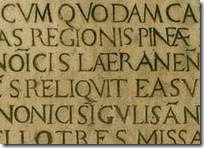 CVM QVODAM CA
AS REGIONIS PINÆ
NOI͂CIS LAERANEN͂
ES RELIQVIT EA SV
NONICI SI͂GVLIS A͂N
ELLO TRES MISSA